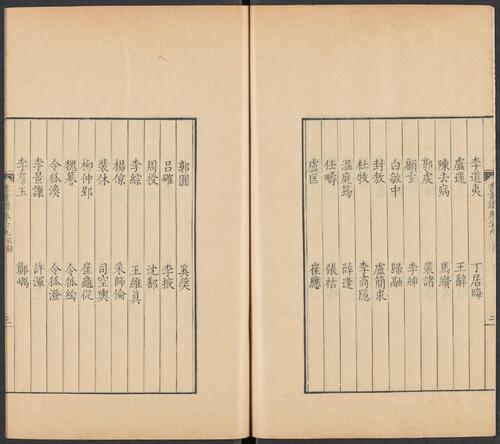 李道夷 丁居晦
盧遲 王辭
陳去病 馬纘
郭虔 裴諸
顧玄 李紳
白敏中 歸融
封敖 盧簡求
杜牧 李商隱
溫庭筠 薛逢
任疇 張祜
盧匡 崔應
郭圓 奚獎
呂確 李掖
周授 沈鄯
李綜 王維真
楊倞 采師倫
裴休 司空輿
柳仲郢 崔龜從
魏謩 令狐綯
令狐渙 令狐澄
李景讓 許渾
李羣玉 鄭嵎